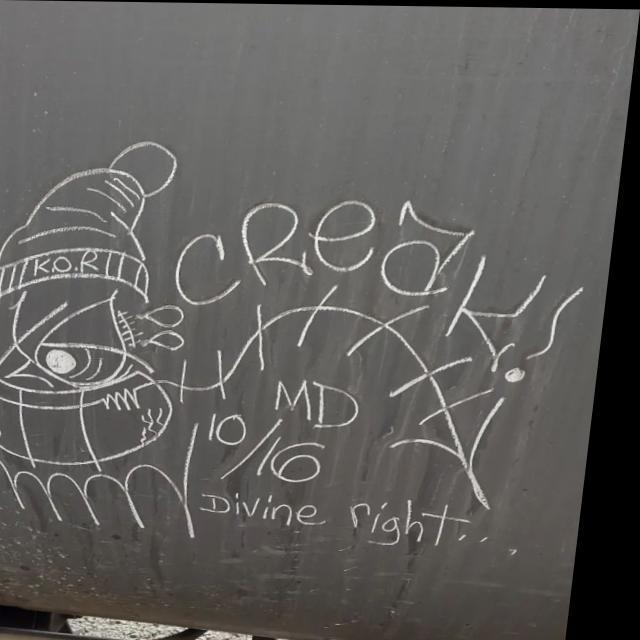 K.O.R
CREaK!
MD
10/16
Divine right...